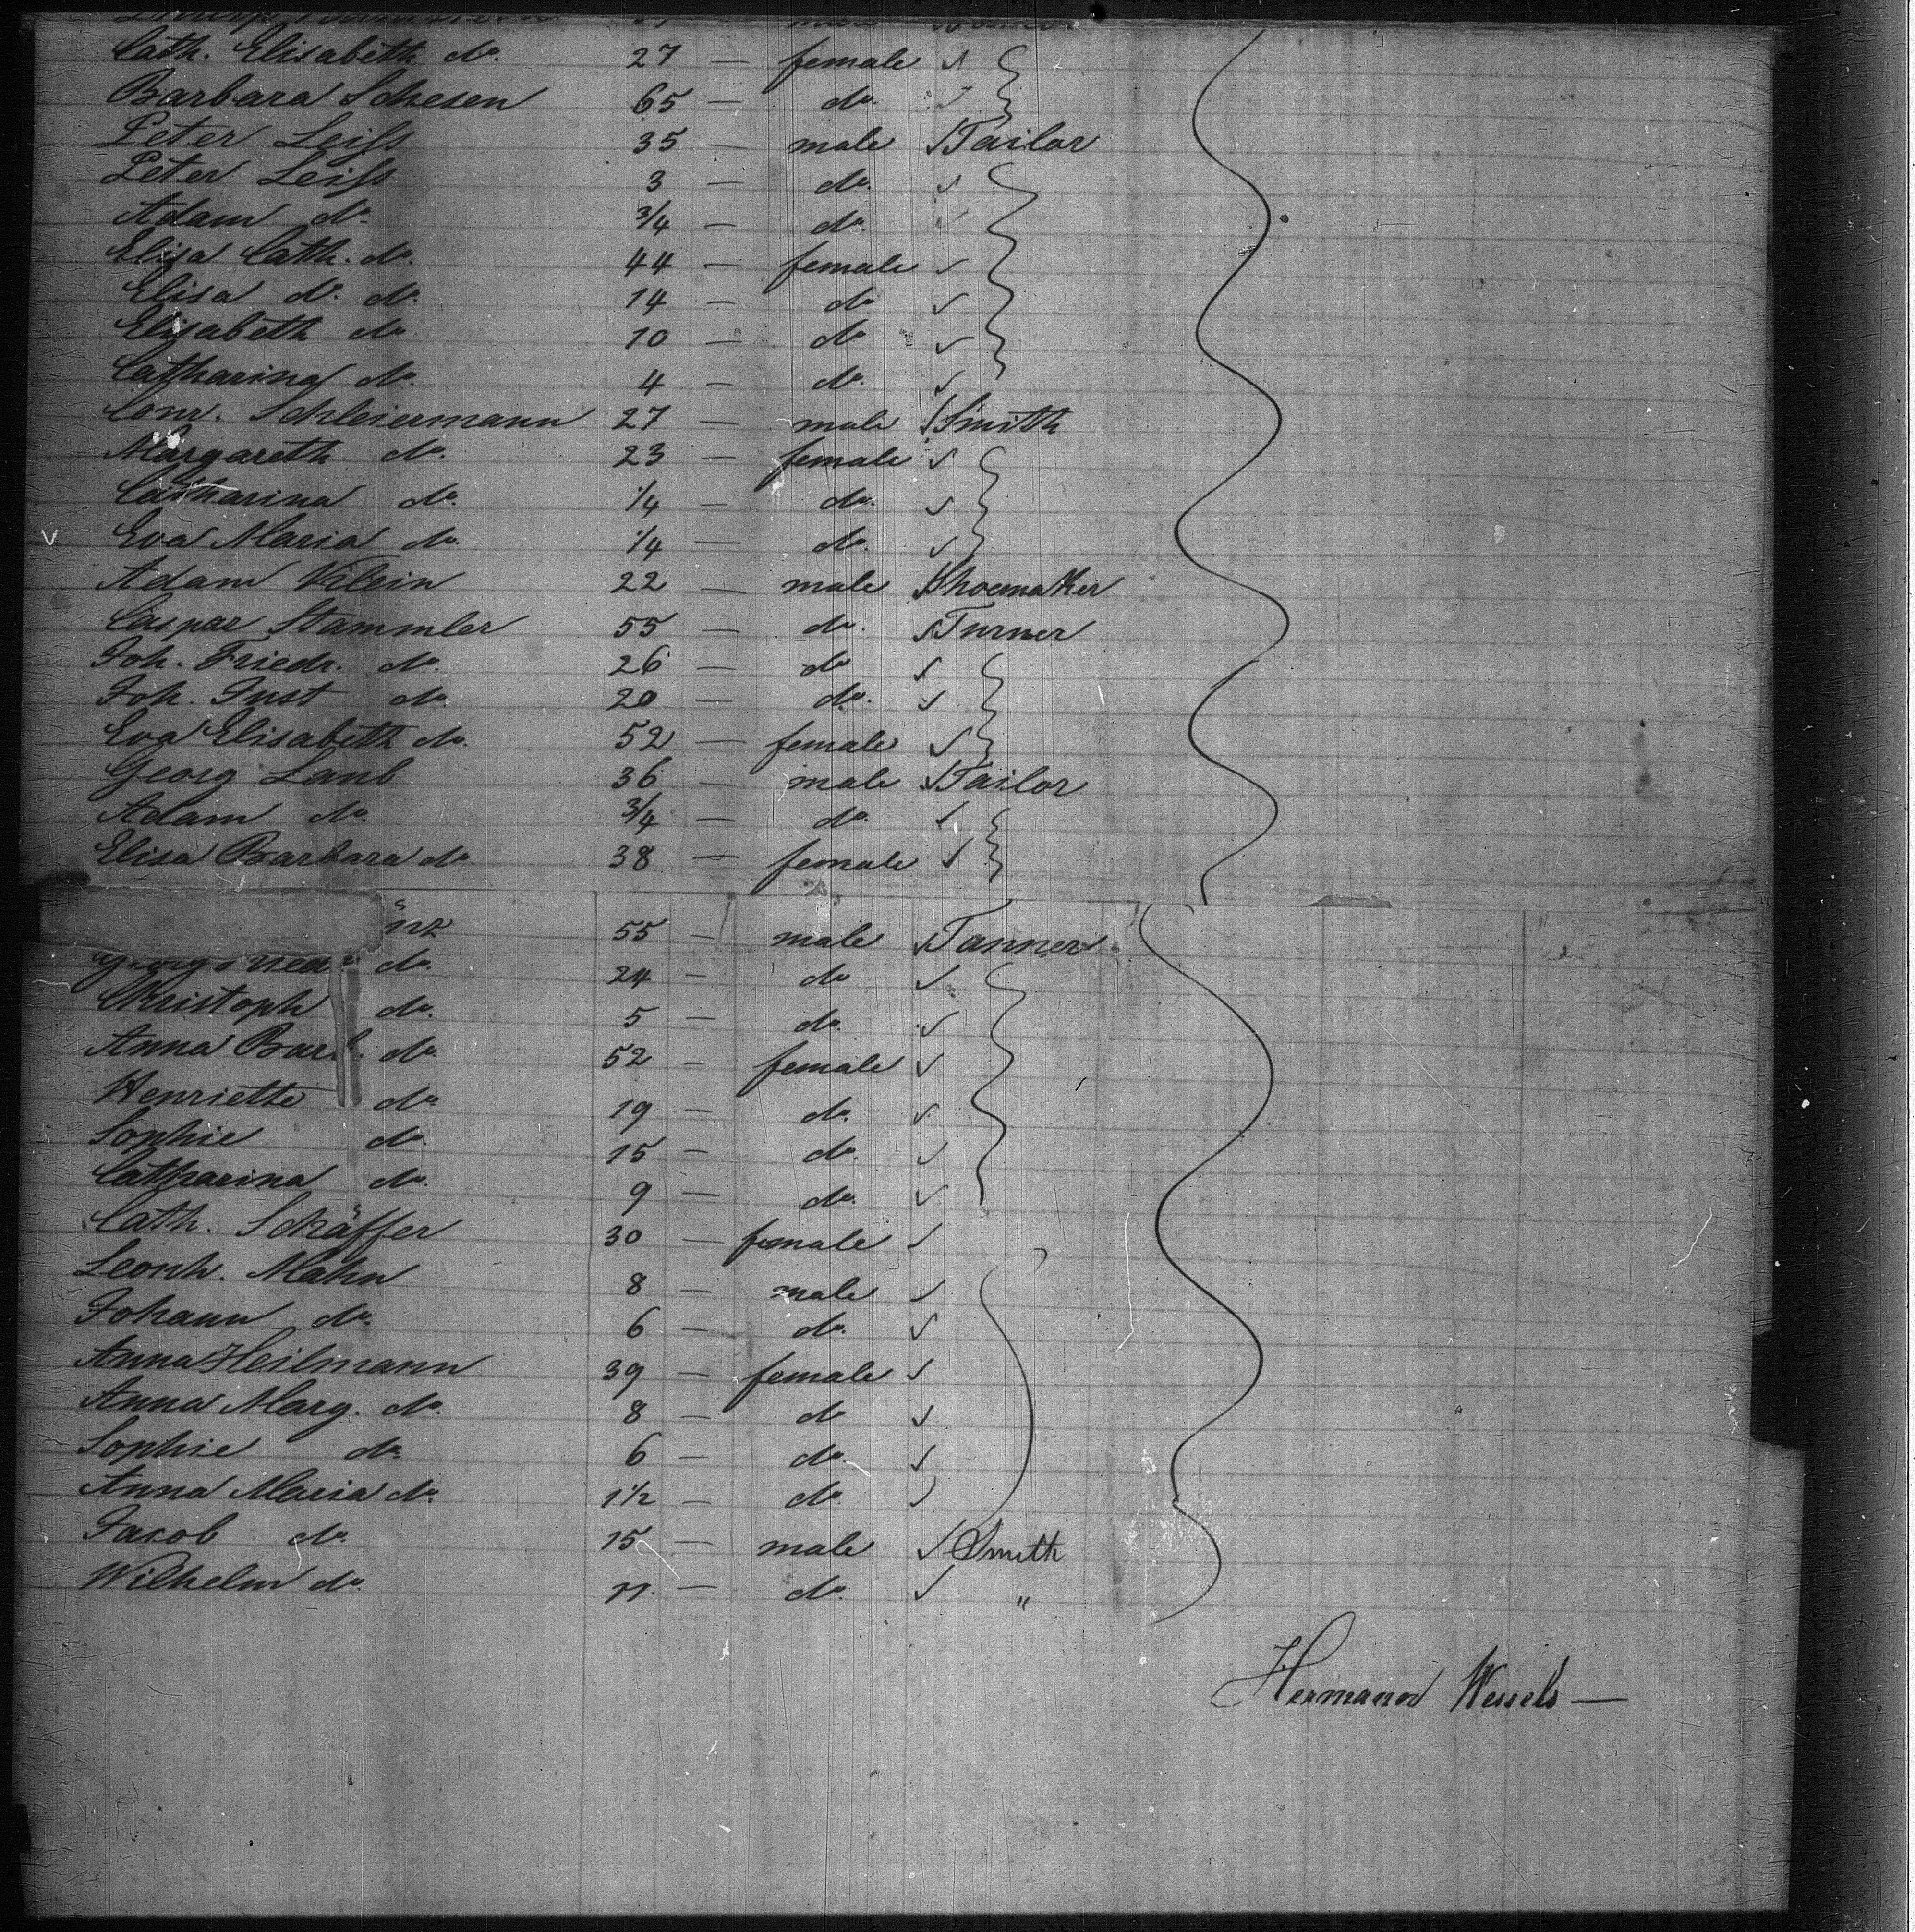 Cath. Elisabeth do. 27 — female
Barbara Schesen 65 — do.
Peter Leiss 35 — male Tailor
Peter Leiss 3 — do.
Adam do. 3/4 — do.
Elisa Cath. do. 44 — female
Elisa do. do. 14 — do
Elisabeth do 10 — do
Catharina do. 4 — do.
Conr. Schleiermann 27 — male Smith
Margareth do. 23 — female
Catharina do. 1/4 — do.
Eva Maria do. 1/4 — do.
Adam Klein 22 — male Shoemaker
Caspar Stammler 55 — do. Turner
Joh. Friedr. do. 26 — do
Joh. Just do 20 — do.
Eva Elisabeth do. 52 — female
Georg Laub 36 — male Tailor
Adam do. 3/4 — do.
Elisa Barbara do 38 — female
55 — male Tanner
do. 24 — do
Christoph do. 5 — do.
Anna Barb. do. 52 — female
Henriette do. 19 — do.
Sophie do. 15 — do.
Catharina do. 9 — do.
Cath. Schäffer 30 — female
Leonh. Mahn 8 — male
Johann do. 6 — do.
Anna Heilmann 39 — female
Anna Marg. do. 8 — do
Sophie do. 6 — do.
Anna Maria do. 1 1/2 — do.
Jacob do. 15 — male Smith
Wilhelm do. 11. — do. "
Hermann Wessels —